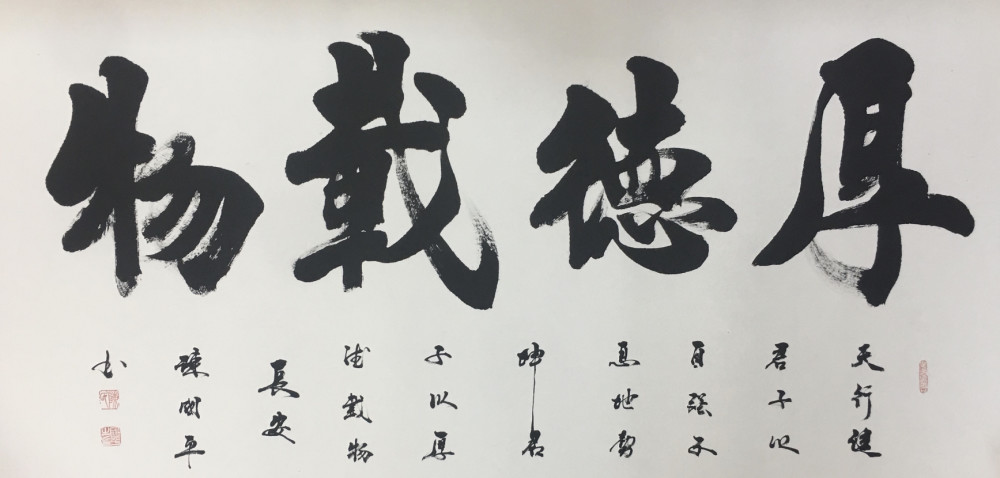 厚德載物
天行健
君子以
自强不
息地勢
坤君
子以厚
德載物
長安
陳平
书